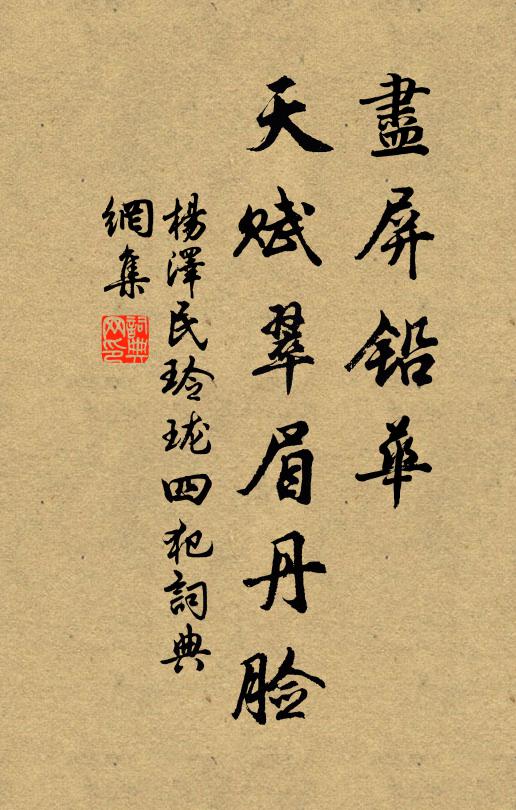 盡屏鉛華
天賦翠眉丹臉
楊澤民玲珑四犯詞典
網集
詞典網印